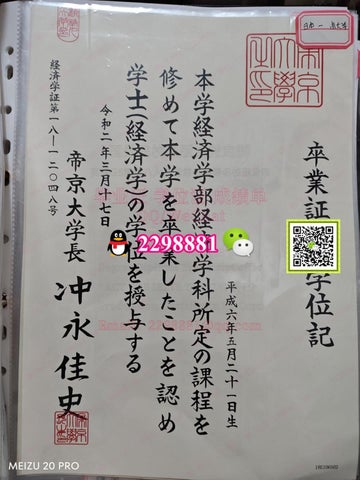 卒業証
学位記
平成六年五月二十一日生
本学経済学部経
学科所定の課程を
修めて本学を卒業したことを認め
学士(経済学)の学位を授与する
令和二年三月十七日
帝京大学長 冲永佳史
経済学証第一八一一二〇四八号
2298881
MEIZU 20 PRO